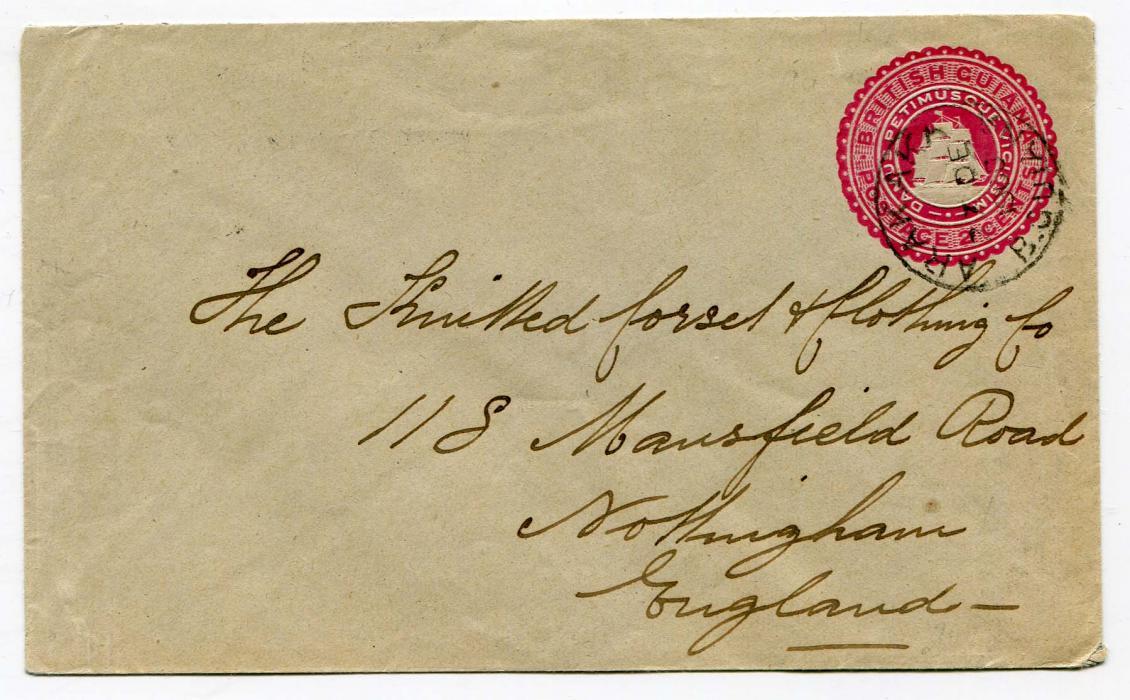 BRITISH GUIANA
POSTAGE 2 CENTS
DAMUS PETIMUSQUE VICISSIM
ARAKAKA
DE
The Knitted Corset & Clothing Co
118 Mansfield Road
Nottingham
England